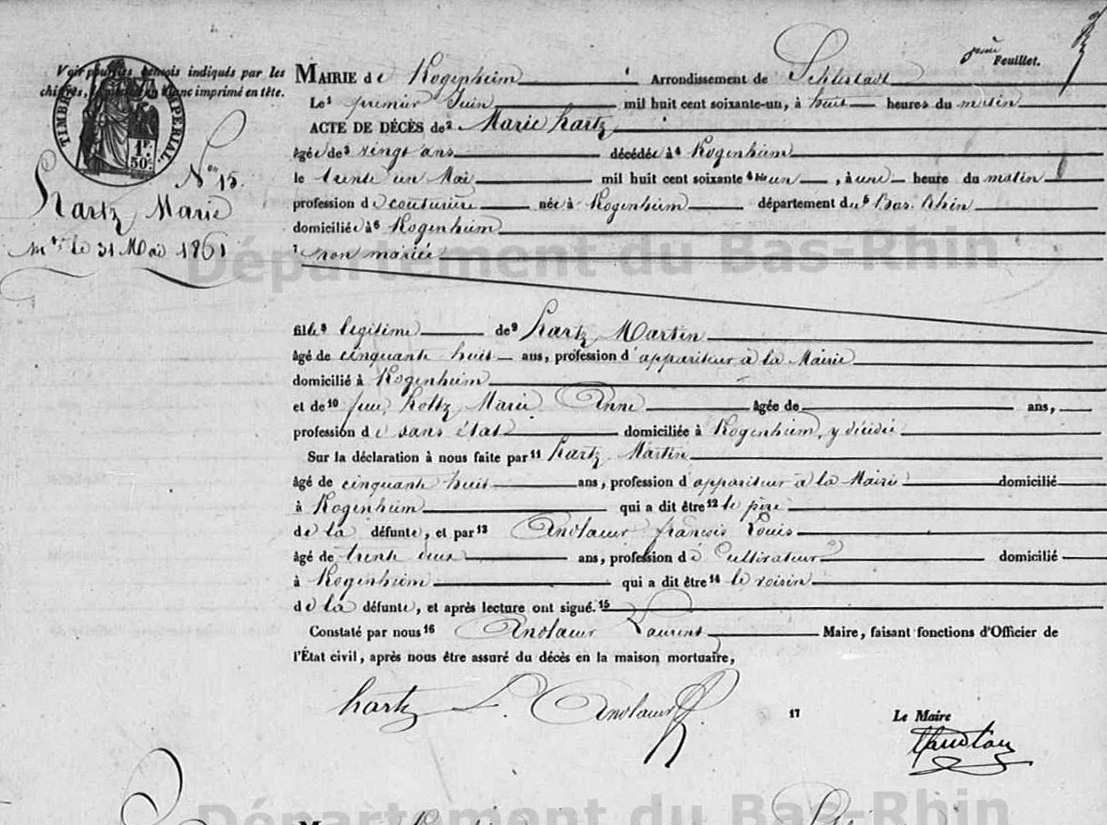 Feuillet.
Voir pour les renvois indiqués par les
chiffres, imprimé en tête.
TIMBRE IMPÉRIAL
1F.
50c.
MAIRIE de Kogenheim Arrondissement de Schlestadt
Le 1 premier Juin mil huit cent soixante-un, à huit heures du matin
ACTE DE DÉCÈS de 2 Marie hartz
âgée de 3 vingt ans décédée à 4 Kogenheim
le trente un Mai mil huit cent soixante 4 bis un, à une heure du matin
profession de couturière née à Kogenheim département du 5 Bas-Rhin
domiciliée à 6 Kogenheim
7 non mariée
No 15.
Hartz Marie
le 31 Mai 1861
Département du Bas-Rhin
fille 8 légitime de 9 hartz Martin
âgé de cinquante huit ans, profession d'appariteur à la Mairie
domicilié à Kogenheim
et de 10 feue Holtz Marie Anne âgée de ans,
profession de sans état domiciliée à Kogenheim, y décédée
Sur la déclaration à nous faite par 11 hartz Martin
âgé de cinquante huit ans, profession d'appariteur à la Mairie domicilié
à Kogenheim qui a dit être 12 le père
de la défunte, et par 13 Andlauer françois Louis
âgé de trente deux ans, profession de Cultivateur domicilié
à Kogenheim qui a dit être 14 le voisin
de la défunte, et après lecture ont signé. 15
Constaté par nous 16 Andlauer Laurent Maire, faisant fonctions d'Officier de
l'État civil, après nous être assuré du décès en la maison mortuaire,
hartz L. Andlauer
17 Le Maire
Andlauer
Département du Bas-Rhin